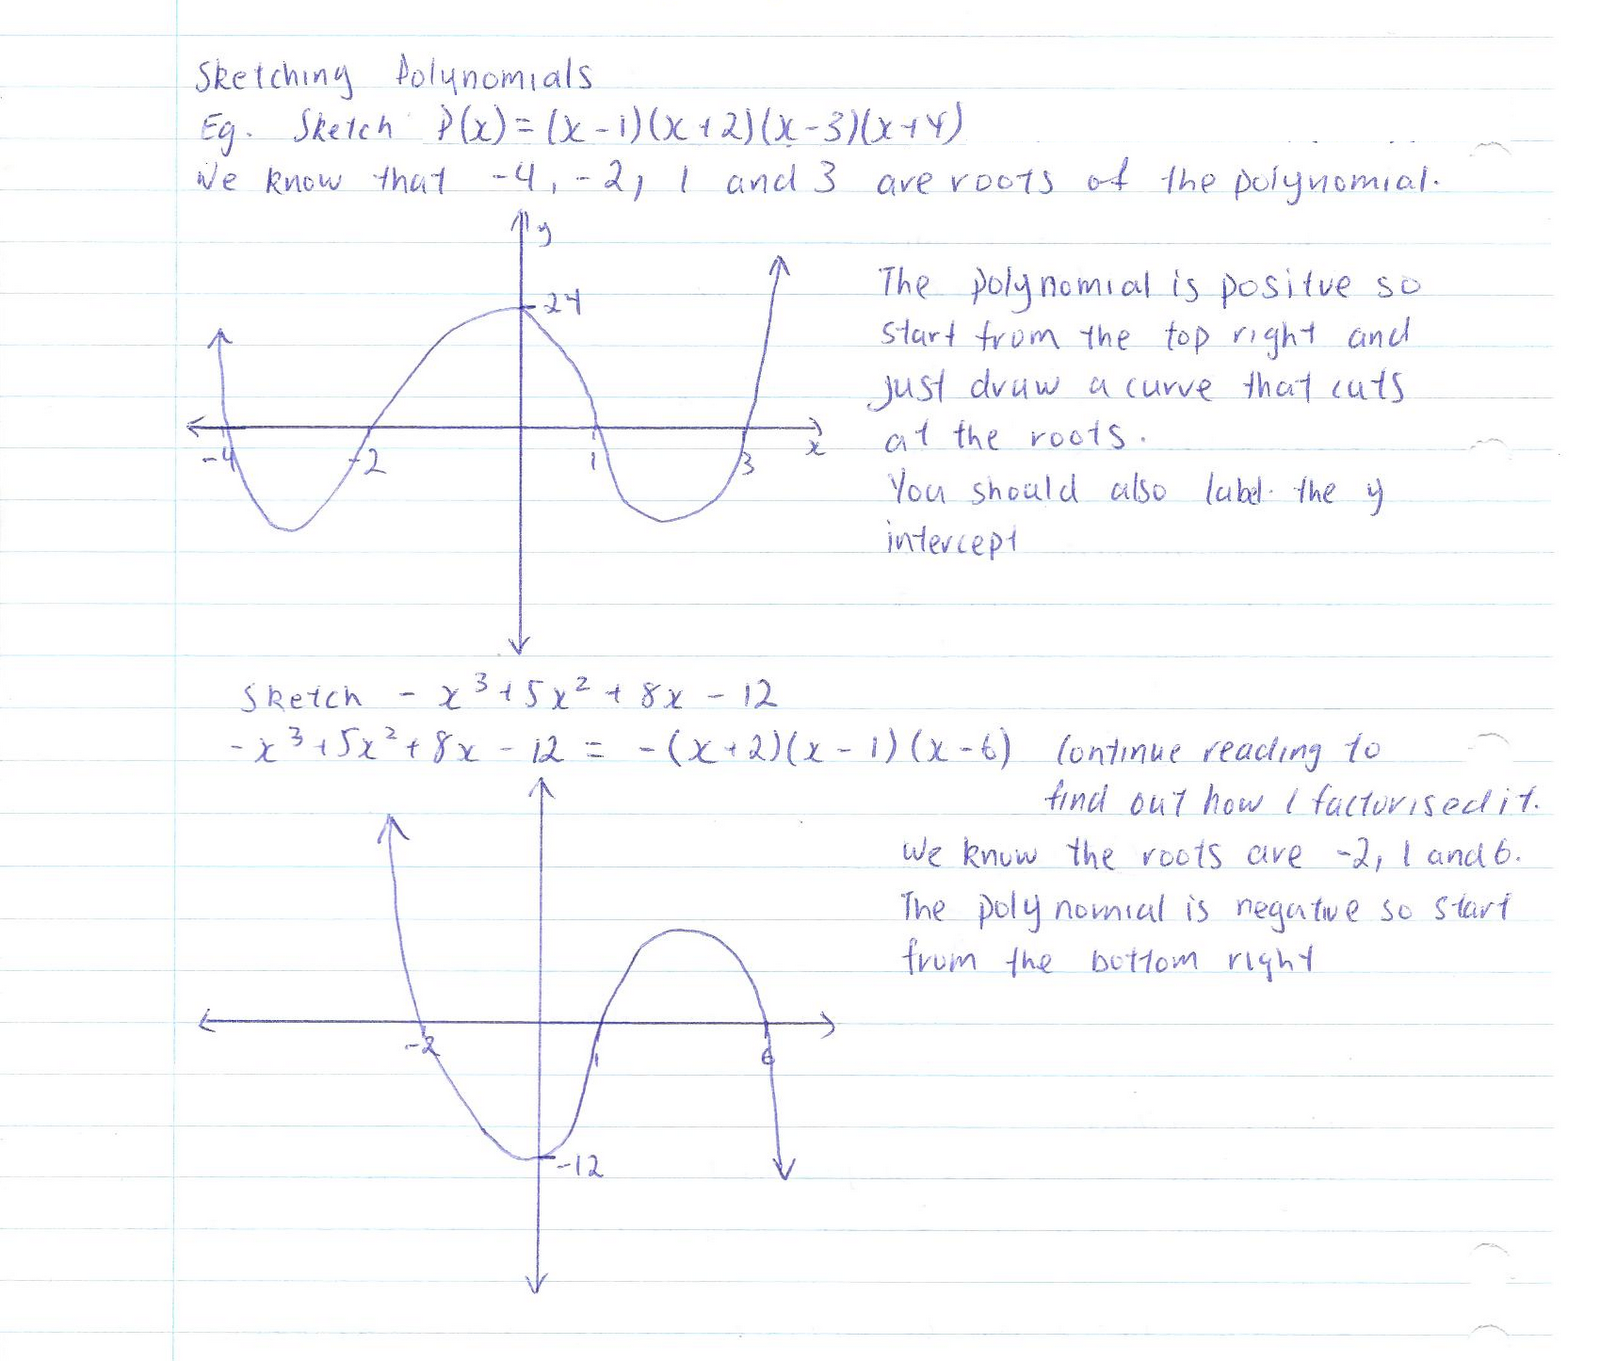 Sketching Polynomials
Eg. Sketch P(x) = (x-1)(x+2)(x-3)(x+4)
We know that -4, -2, 1 and 3 are roots of the polynomial.
y
24
-4 -2 1 3 x
The polynomial is positve so
start from the top right and
just draw a curve that cuts
at the roots.
You should also label the y
intercept
Sketch -x³+5x²+8x-12
-x³+5x²+8x-12 = -(x+2)(x-1)(x-6) Continue reading to
find out how I factorised it.
We know the roots are -2, 1 and 6.
The polynomial is negative so start
from the bottom right
-2 1 6
-12